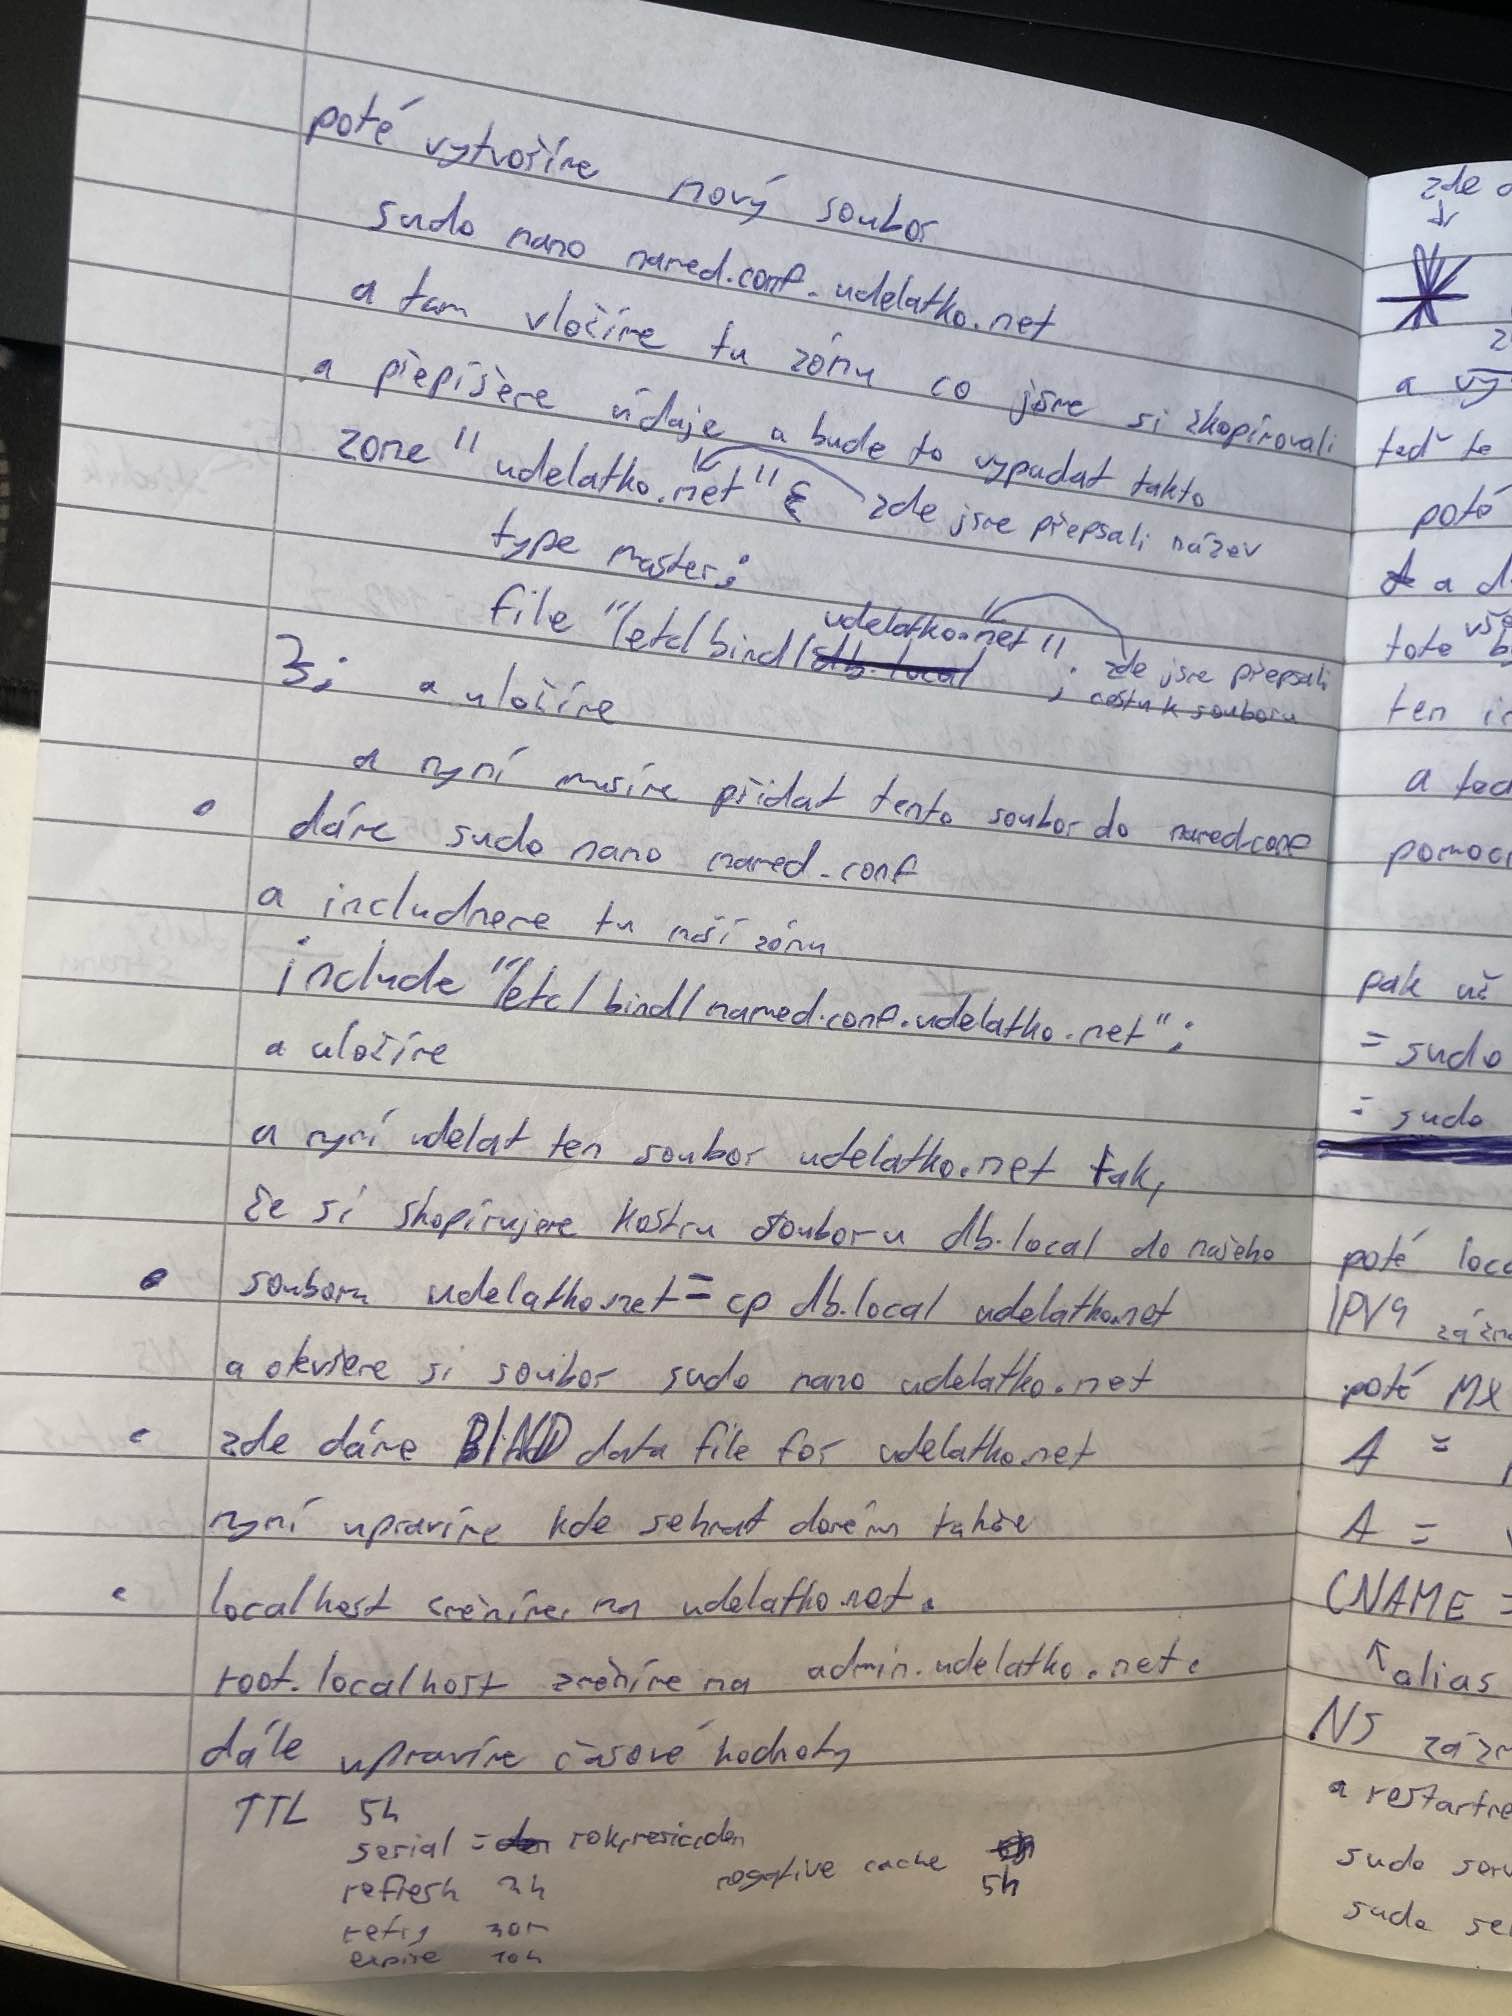 poté vytvoříme nový soubor
sudo nano named.conf.udelatko.net
a tam vložíme tu zónu co jsme si zkopírovali
a přepíšeme údaje a bude to vypadat takto
zone "udelatko.net" { zde jsme přepsali název
type master;
file "/etc/bind/db.local udelatko.net"; zde jsme přepsali
cestu k souboru
}; a uložíme
a nyní musíme přidat tento soubor do named.conf
• dáme sudo nano named.conf
a includneme tu naší zónu
include "/etc/bind/named.conf.udelatko.net";
a uložíme
a nyní udelat ten soubor udelatko.net tak,
že si skopírujeme kostru souboru db.local do našeho
• souboru udelatko.net = cp db.local udelatko.net
a otevřeme si soubor sudo nano udelatko.net
• zde dáme BIND data file for udelatko.net
nyní upravíme kde sehnat doménu takže
• localhost změníme na udelatko.net.
root.localhost změníme na admin.udelatko.net.
dále upravíme časové hodnoty
TTL 5h
serial = rok,mesic,den
refresh 2h negative cache 5h
retry 30m
expire 10h
zde
a
teď te
poté
a d
vše
toto b
ten
a teď
pomocí
pak už
= sudo
= sudo
poté loc
IPV4
poté MX
A =
A =
CNAME =
↑alias
NS
a restart
sudo
sudo